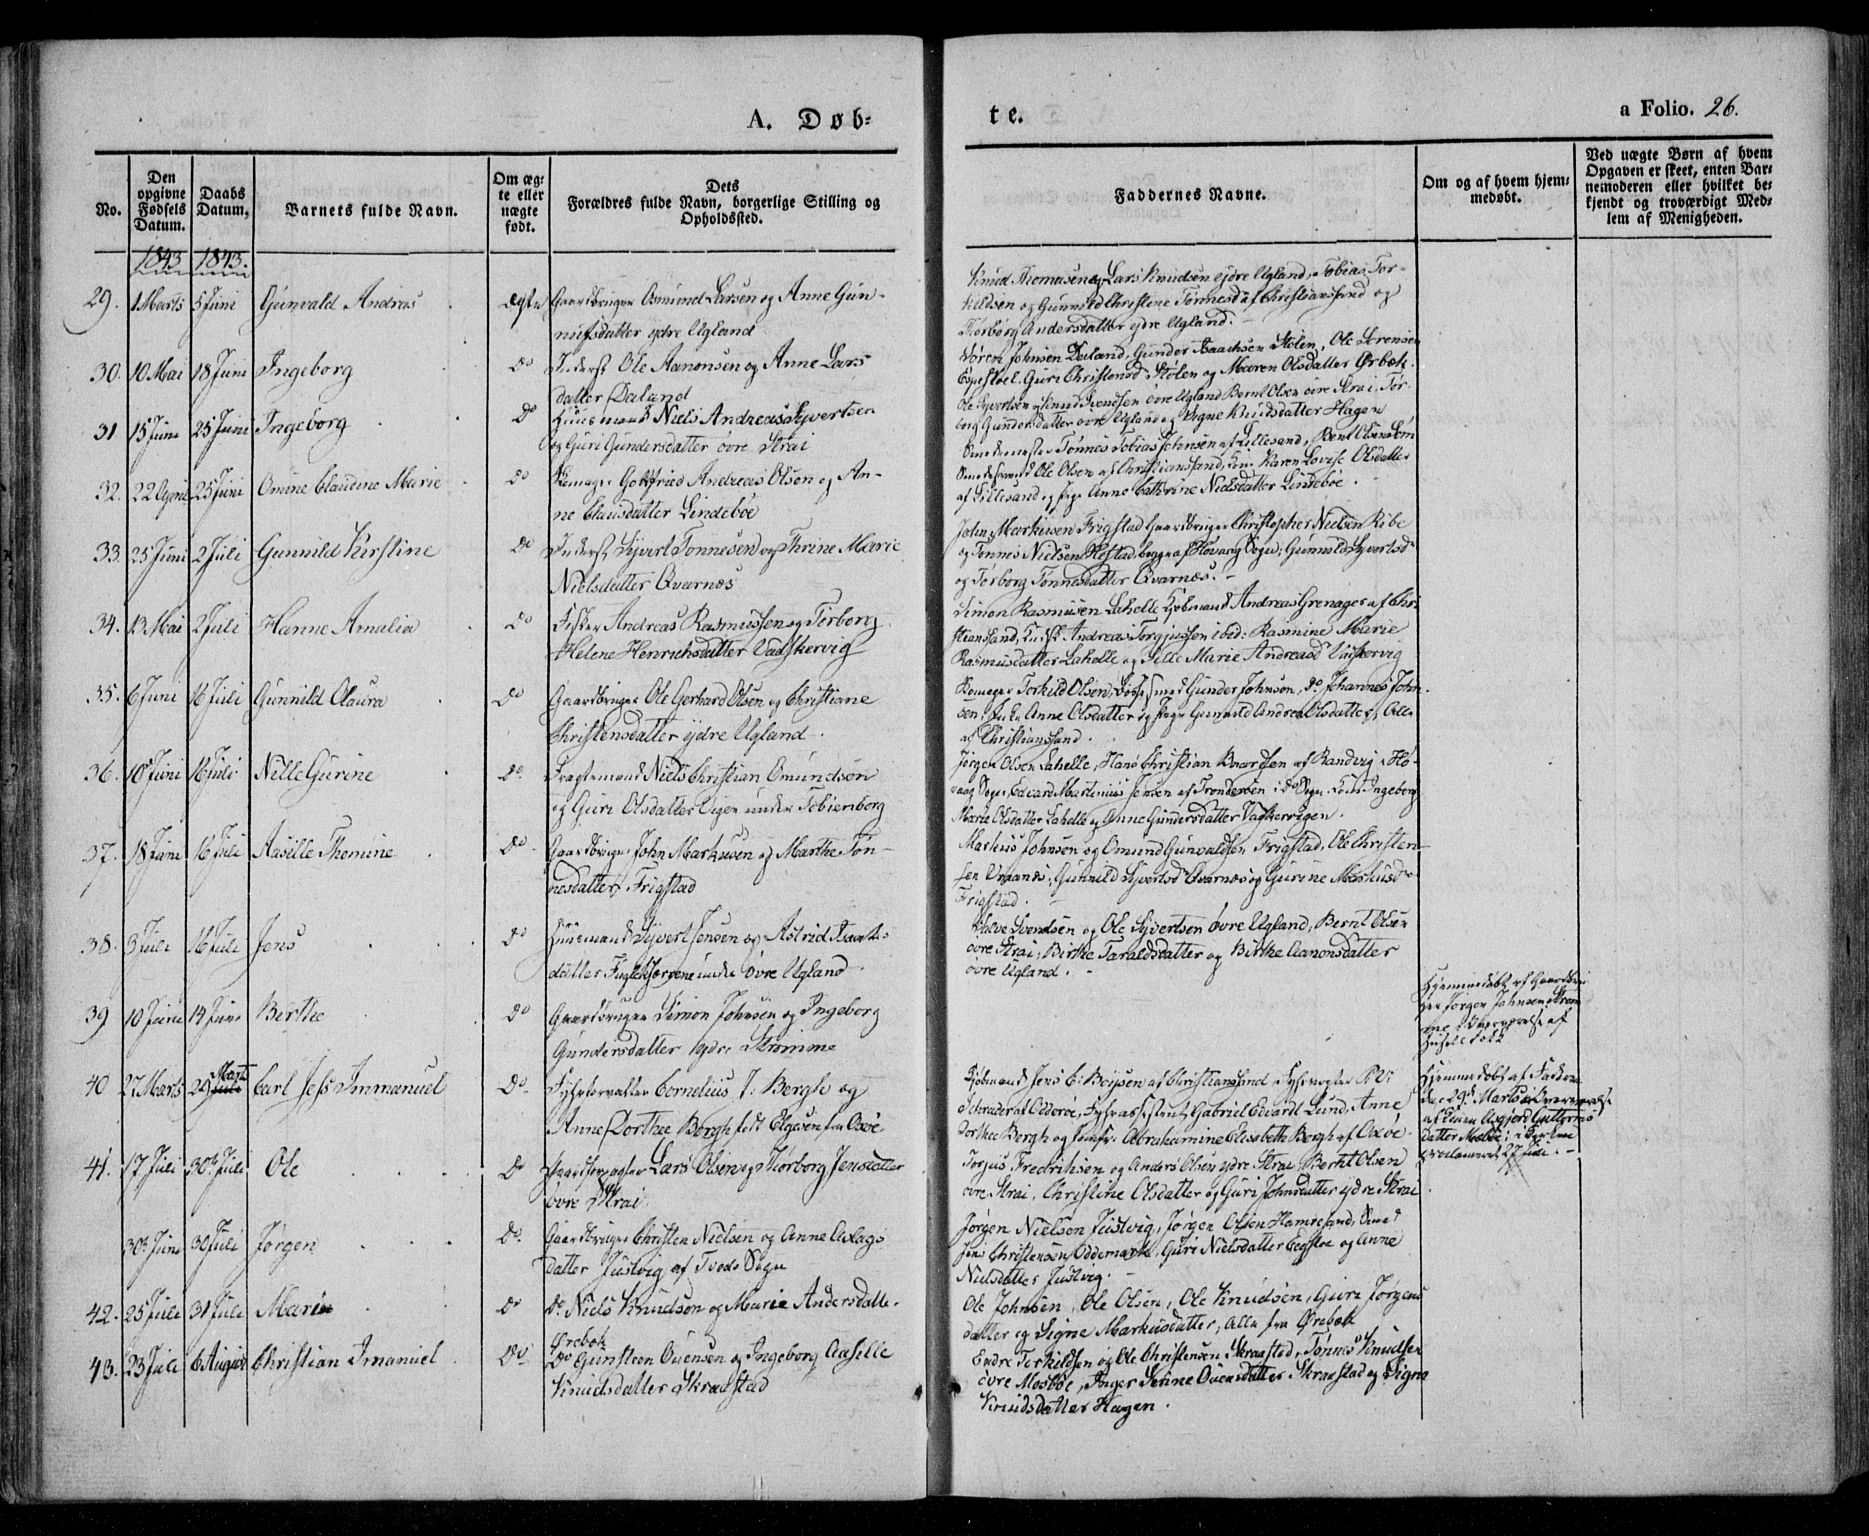 A. Døb-
te.
a Folio. 26.
No.
Den opgivne Fødsels Datum.
Daabs Datum.
Barnets fulde Navn.
Om ægte eller uægte født.
Dets Forældres fulde Navn, borgerlige Stilling og Opholdssted.
Faddernes Navne.
Om og af hvem hjemmedøbt.
Ved uægte Børn af hvem
Opgaven er skeet, enten Bar-
nemoderen eller hvilket be-
kjendt og troværdigt Med-
lem af Menigheden.
1843 1843.
29. 1 Marts 5 Juni Gunvald Andreas Ægte Gaardbruger Osmund Larsen og Anne Gun-
nufsdatter ydre Ugland
Knud Thomasen og Lars Knudsen ydre Ugland, Tobias Tor-
kildsen og Gunnild Christine Tønnesd af Christianssand og
Thorborg Andersdatter ydre Ugland.
30. 10 Mai 18 Juni Ingeborg do Inderst Ole Aanonsen og Anne Lars
datter Daland
Søren Johnsen Daland, Gunder Isaachsen Stølen, Ole Sørensen
Espestøl, Guri Christensd Stølen og Maren Olsdatter Ørbæk.
31 15 Juni 25 Juni Ingeborg do Huusmand Niels Andreas Syvertsen
og Guri Gundersdatter øvre Strai
Ole Syvertsen og Knud Svendsen øvre Ugland Bernt Olsen øvre Strai, Tor-
borg Gundersdatter øvre Ugland og Signe Knudsdatter Hagen
32. 22 April 25 Juni Omine Claudine Marie do Skomager Gottfried Andreas Olsen og An-
ne Clausdatter Lindebøe
Tønnes Tobias Johnsen af Lillesand,
Ole Olsen af Christianssand, Karen Lovise Olsdatter
af Lillesand og Pige Anne Cathrine Nielsdatter Lindebøe.
33. 25 Juni 2 Juli Gunnild Kirstine do Inderst Syvert Tønnesen og Thrine Marie
Nielsdatter Qvarnæs
John Markusen Frigstad Gaardbruger Christopher Nielsen Ribe
og Tønnes Nielsen Hestad, begge af Høvaag Sogn, Gunnild Syvertsd
og Torborg Tønnesdatter Qvarnæs.
34. 13 Mai 2 Juli Hanne Amalia do Fisker Andreas Rasmussen og Torborg
Helene Henrichsdatter Vadskervig
Simon Rasmusen Lahelle Kjøbmand Andreas Grenager af Chri-
stianssand, Andreas Torgjussen ibid: Rasmine Marie
Rasmusdatter Lahelle og Sille Marie Andreasd Vaskervig
35. 6 Juni 16 Juli Gunnild Olaura do Gaardbruger Ole Gerhard Olsen og Christiane
Christensdatter ydre Ugland.
Skomager Torkild Olsen, Gunder Johnsen, do Johannes John-
sen, Anne Olsdatter og Pige Gunnild Andrea Olsdatter, Alle
af Christianssand.
36. 10 Juni 16 Juli Nille Gurine do. Fragtemand Niels Christian Omundsen
og Guri Olsdatter Vigen under Tobienborg
Jørgen Olsen Lahelle, Hans Christian af Randvig i Hø-
vaag Sogn, Edvard Martinius Jensen af i do Sogn. Ingeborg
Marie Olsdatter Lahelle og Anne Gundersdatter Vaskervigen.
37. 18 Juni 16 Juli Aasille Thomine do. Gaardbruger John Markusen og Marthe Tøn-
nesdatter Frigstad
Markus Johnsen og Omund Gunvaldsen Frigstad, Ole Christen-
sen Vraanæs, Gunnild Syvertsd Qvarnæs og Gurine Markusd
Frigstad.
38. 3 Juli 16 Juli Jens do Huusmand Syvert Jensen og Astrid Isaaks-
datter under Øvre Ugland.
Salve Svendsen og Ole Syvertsen Øvre Ugland, Bernt Olsen
øvre Strai, Birthe Taraldsdatter og Birthe Aanonsdatter
øvre Ugland.
39 10 Juni 14 Juni Berthe do Gaardbruger Simon Johnsen og Ingeborg
Gundersdatter ydre Strømme
Hjemmedøbt af Gaardbru-
ger Jørgen Johnsen Strøm-
me i Overværelse af
Husets Folk
40 27 Marts 29 Marts Juli Carl Jess Immanuel do. Fyrforvalter Cornelius J: Bergh og
Anne Dorthee Bergh født Elgesen fra Oxøe
Kjøbmand Jens C: Beysen af Christianssand
Schrader af Odderøe, Fyrassistent Gabriel Edvard Lund, Anne
Dorthee Bergh og Jomfr: Abrahamine Elisabeth Bergh af Oxøe.
Hjemmedøbt af Faderen
den 29de Marts i Overværelse
af Asgjerd Guttorms-
datter
27 Juli.
41. 17 Juli 30te Juli Ole do Gaardforpagter Lars Olsen og Thorborg Jensdatter
øvre Strai
Torjus Fredrichsen og Anders Olsen ydre Strai, Bernt Olsen
øvre Strai, Christine Olsdatter og Guri Johnsdatter ydre Strai
30te Juni 30 Juli Jørgen do. Gaardbruger Christen Nielsen og Anne Aslags
datter Justvig af Tveds Sogn
Jørgen Nielsen Justvig, Jørgen Olsen Hamresand, Smed
Jens Christensen Oddemark, Guri Nielsdatter Eegstøe og Anne
Nielsdatter Justvig.
42. 25 Juli 31 Juli Maria do do Niels Knudsen og Marie Andersdatter
Ørebæk
Ole Johnsen, Ole Olsen, Ole Knudsen, Guri Jørgens
datter og Signe Markusdatter, Alle fra Ørebæk
43. 23 Juli 6 August Christian Imanuel do do Gunsteen Ouensen og Ingeborg Aasille
Knudsdatter Skraastad
Endre Torkildsen og Ole Christensen Skraastad, Tønnes Knudsen
øvre Mosbøe, Inger Serine Ouensdatter Skraastad og Signe
Knudsdatter Hagen.